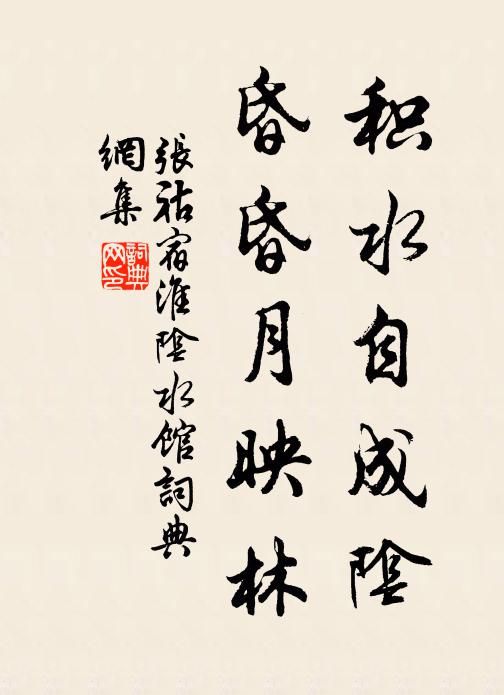 积水自成陰
昏昏月映林
張祜宿淮陰水館詞典
網集
詞典
网印